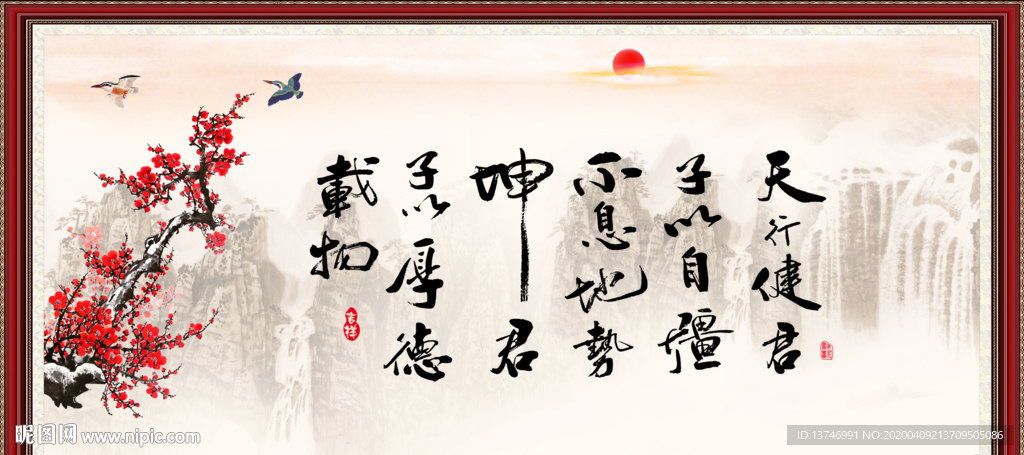 天行健君
子以自彊
不息地勢
坤君
子以厚德
載物
吉祥
昵图网 www.nipic.com
ID:13746991 NO:20200409213709505086